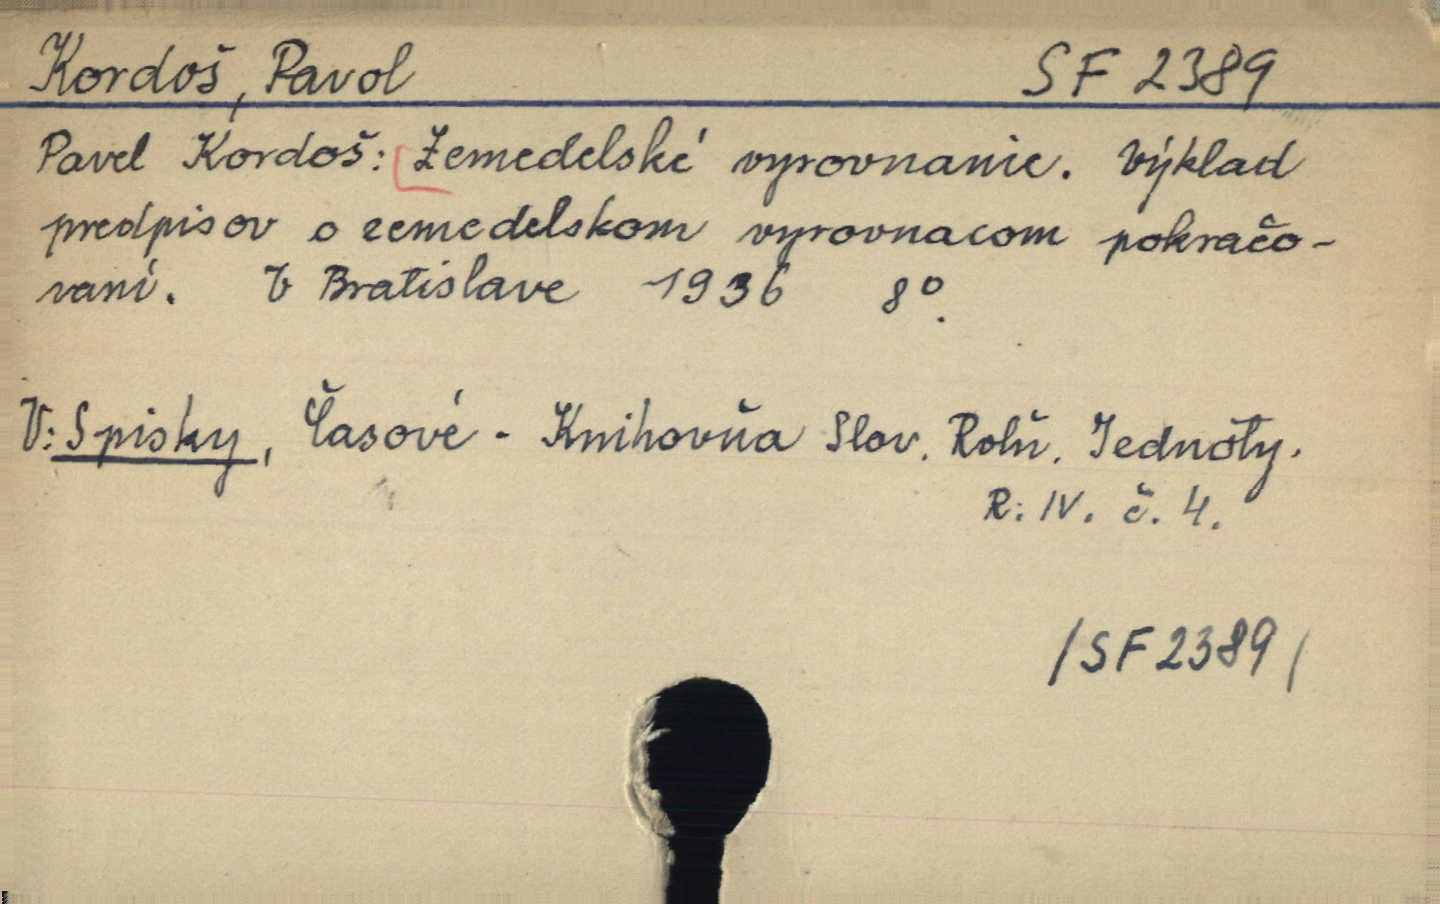 Kordoš, Pavol SF 2389
Pavel Kordoš: Zemedelské vyrovnanie. Výklad
predpisov o zemedelskom vyrovnacom pokračo-
vaní. V Bratislave 1936 8°.
V: Spisky, Časové - Knihovňa Slov. Roľn. Jednoty.
R: IV. č. 4.
/SF 2389/